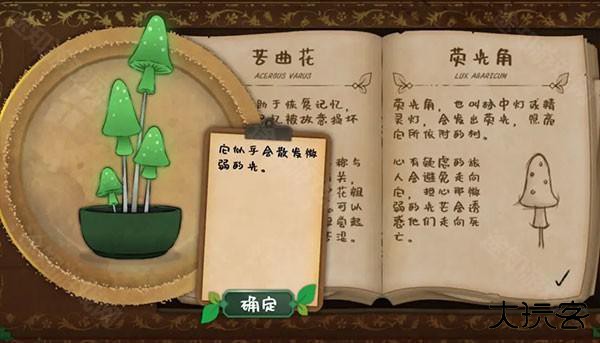 苦曲花
ACERBUS VARUS
助于恢复记忆,
忆被故意损坏
它似乎会散发微
弱的光。
确定
荧光角
LUX AGARICUM
荧光角,也叫林中灯或精
灵灯,会发出荧光,照亮
它所依附的树。
心有疑虑的旅
人会避免走向
它,担心那微
弱的光芒会诱
惑他们走向死
亡。
大玩客